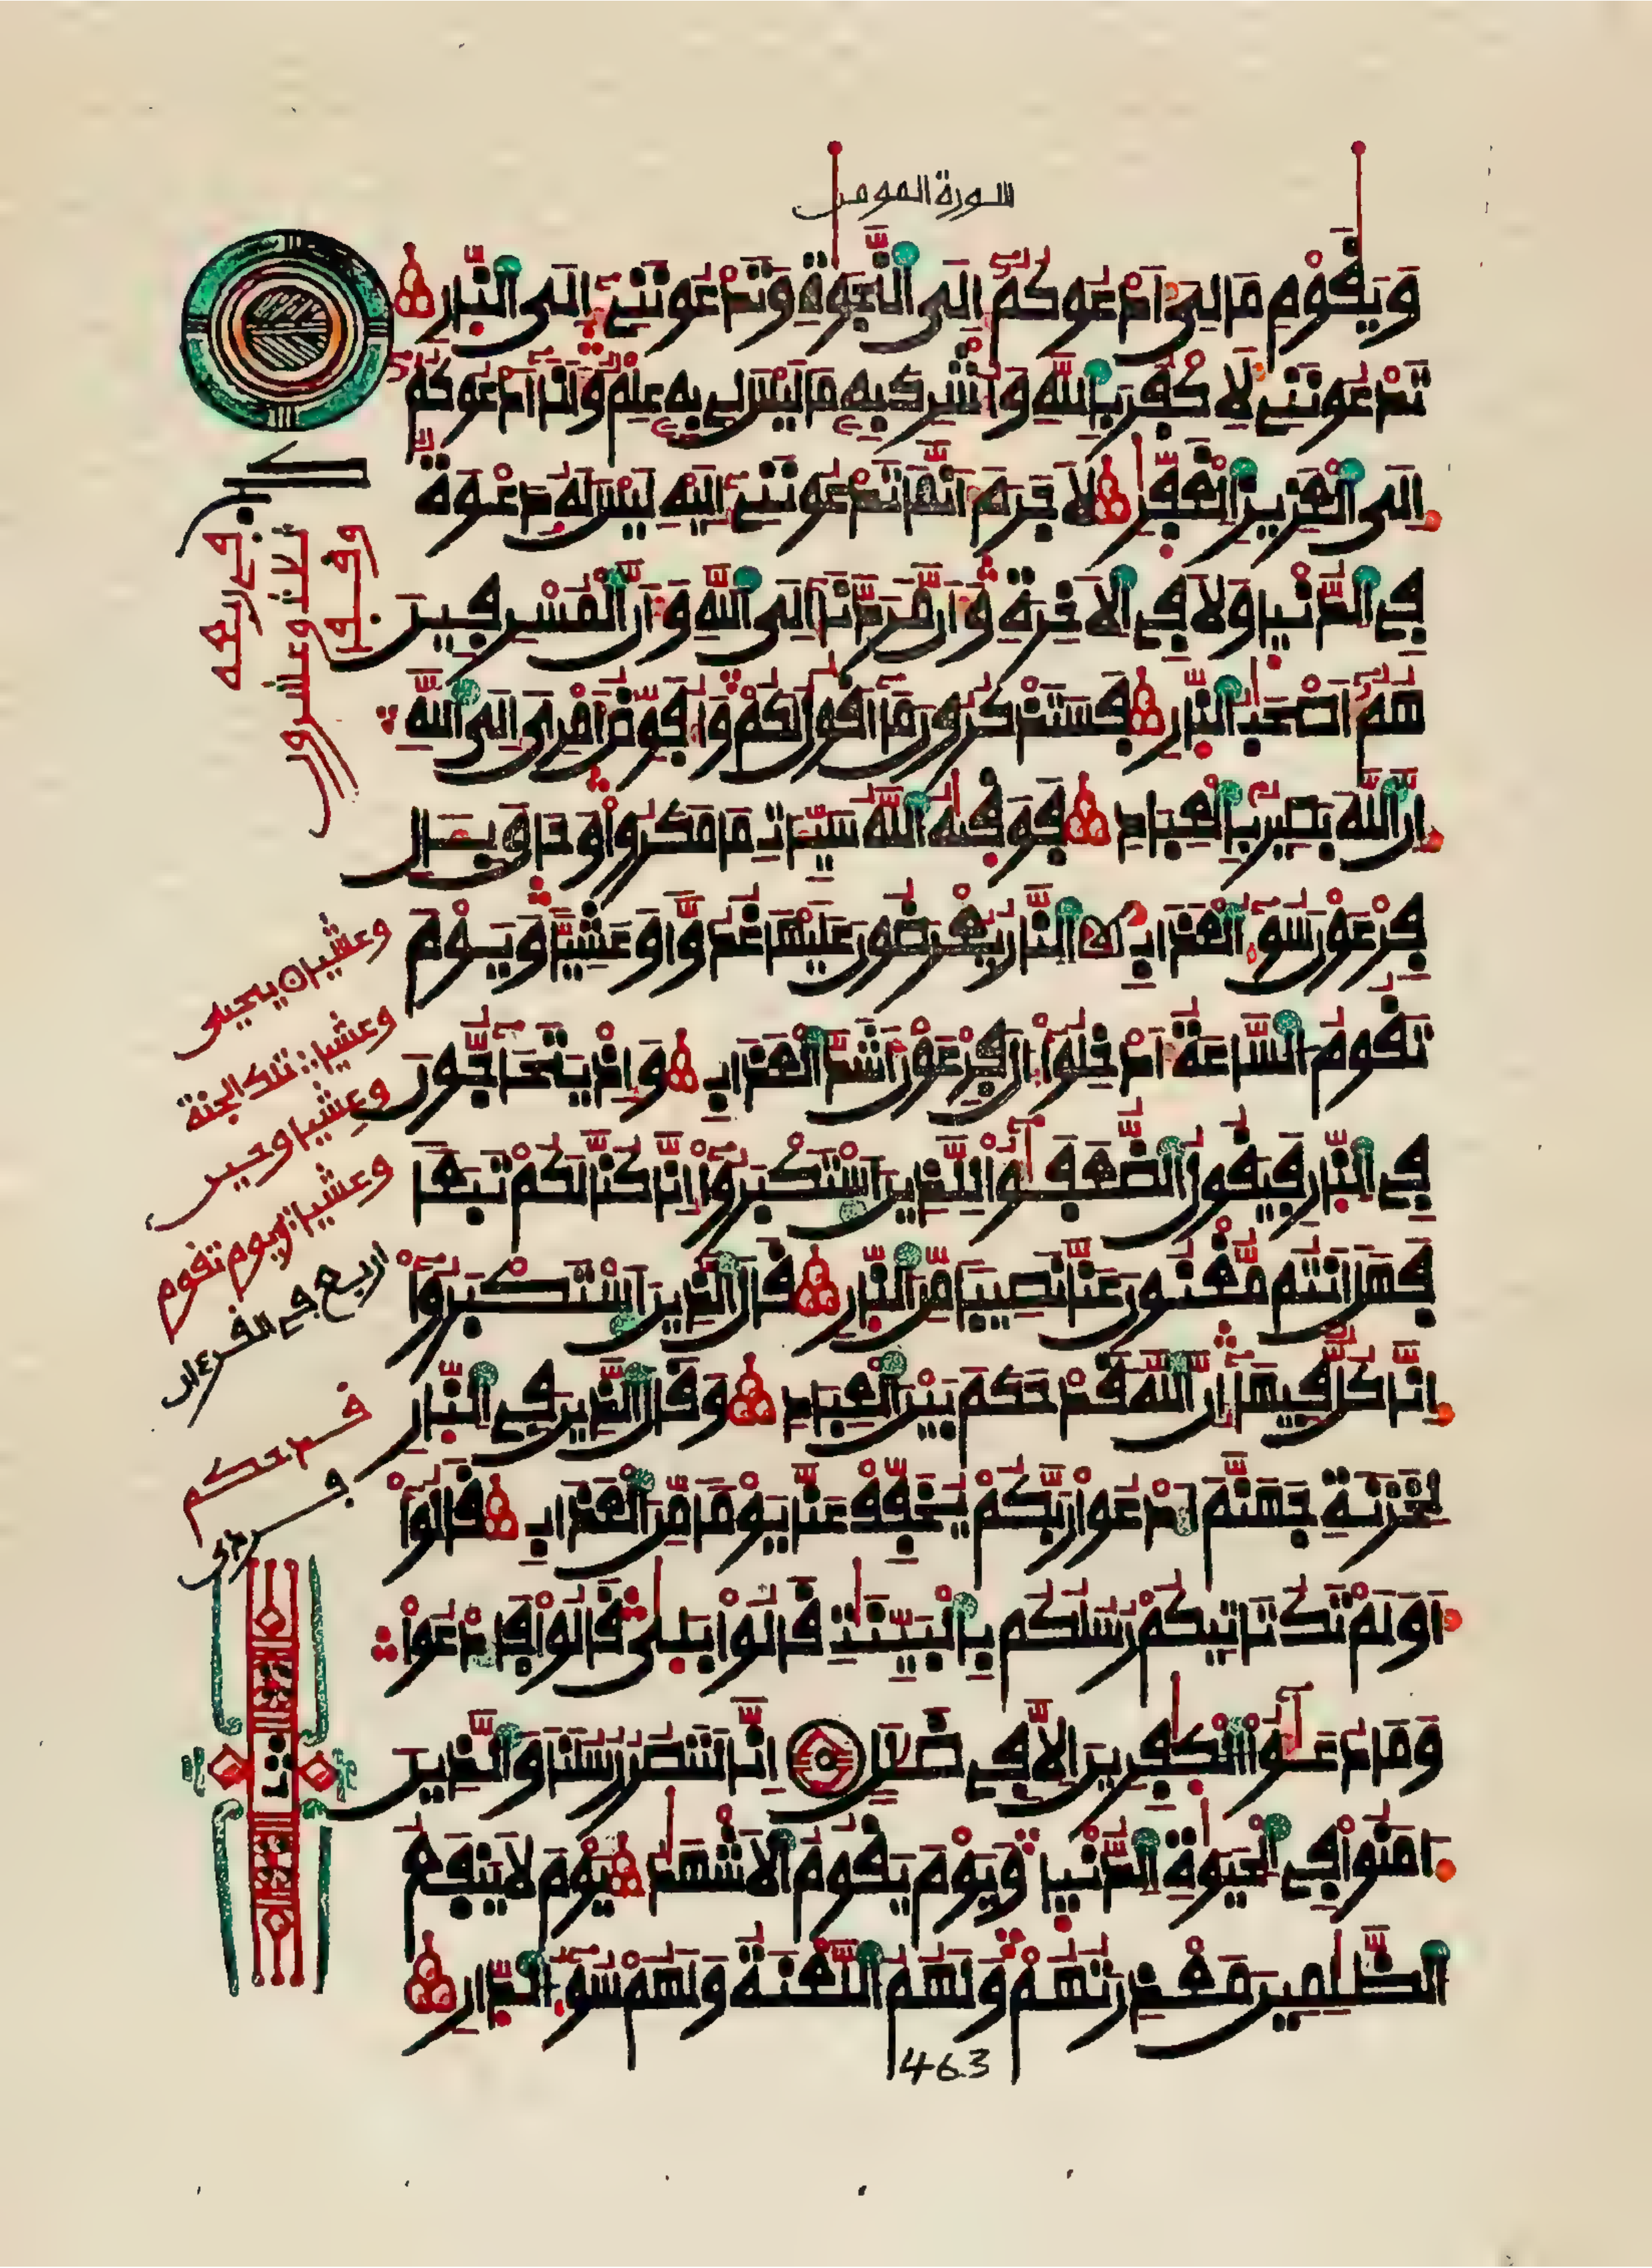 سورة المومن
وَيَٰقَوْمِ مَا لِيَ أَدْعُوكُمُ إِلَى اَلنَّجَوٰةِ وَتَدْعُونَنِے إِلَى اَلنّ۪ارِ
تَدْعُونَنِے لِأَكْفُرَ بِاللَّهِ وَأُشْرِكَ بِهِ مَا لَيْسَ لِے بِهِ عِلْمٌ وَأَنَا أَدْعُوكُمُ
إِلَى اَلْعَزِيزِ اِلْغَفّٰرِ لَا جَرَمَ أَنَّمَا تَدْعُونَنِے إِلَيْهِ لَيْسَ لَهُ دَعْوَةٌ
فِے اِلدُّنْيَا وَلَا فِے اِلْأَخِرَةِ وَأَنَّ مَرَدَّنَا إِلَى اَللَّهِ وَأَنَّ اَلْمُسْرِفِينَ
هُمُ أَصْحَٰبُ اُلنّ۪ارِ فَسَتَذْكُرُونَ مَا أَقُولُ لَكُمْ وَأُفَوِّضُ أَمْرِيَ إِلَى اَللَّهِ
إِنَّ اَللَّهَ بَصِيرٌ بِالْعِبَادِ فَوَقَيٰهُ اُللَّهُ سَيِّـَٔاتِ مَا مَكَرُواْ وَحَاقَ بِـَٔالِ
فِرْعَوْنَ سُوٓءُ اُلْعَذَابِ اِلنَّارُ يُعْرَضُونَ عَلَيْهَا غُدُوّاً وَعَشِيّاً وَيَوْمَ
تَقُومُ اُلسَّاعَةُ أَدْخِلُواْ ءَالَ فِرْعَوْنَ أَشَدَّ اَلْعَذَابِ وَإِذْ يَتَحَاجُّونَ
فِے اِلنّ۪ارِ فَيَقُولُ اُلضُّعَفَٰٓؤُاْ لِلَّذِينَ اَسْتَكْبَرُواْ إِنَّا كُنَّا لَكُمْ تَبَعاً
فَهَلَ اَنتُم مُّغْنُونَ عَنَّا نَصِيباً مِّنَ اَلنّ۪ارِ قَالَ اَلَّذِينَ اَسْتَكْبَرُواْ
إِنَّا كُلٌّ فِيهَا إِنَّ اَللَّهَ قَدْ حَكَمَ بَيْنَ اَلْعِبَادِ وَقَالَ اَلَّذِينَ فِے اِلنّ۪ارِ
لِخَزَنَةِ جَهَنَّمَ اَدْعُواْ رَبَّكُمْ يُخَفِّفْ عَنَّا يَوْماً مِّنَ اَلْعَذَابِ قَالُواْ
أَوَلَمْ تَكُ تَأْتِيكُمْ رُسُلُكُم بِالْبَيِّنَٰتِ قَالُواْ بَلَىٰ قَالُواْ فَادْعُواْ
وَمَا دُعَٰٓؤُاْ اُلْكَٰفِرِينَ إِلَّا فِے ضَلَٰلٍ إِنَّا لَنَنصُرُ رُسُلَنَا وَالَّذِينَ
ءَامَنُواْ فِے اِلْحَيَوٰةِ اِلدُّنْيَا وَيَوْمَ يَقُومُ اُلْأَشْهَٰدُ يَوْمَ لَا تَنفَعُ
اُلظَّٰلِمِينَ مَعْذِرَتُهُمْ وَلَهُمُ اُللَّعْنَةُ وَلَهُمْ سُوٓءُ اُلدّ۪ارِ
وعشيا يحيى
وعشيا تلك الجنة
وعشيا وحين
وعشيا ويوم تقوم
اربع في القرءان
قد حكم
463